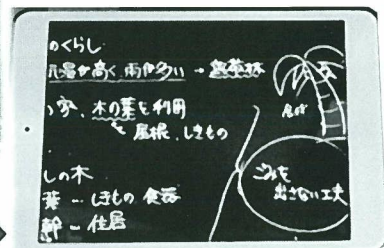 のくらし
気温が高く、雨が多い → 熱帯林
家、木の葉を利用
屋根、しきもの
しの木
葉 ー しきもの 食器
幹 ー 住居
ゴミを
出さない工夫